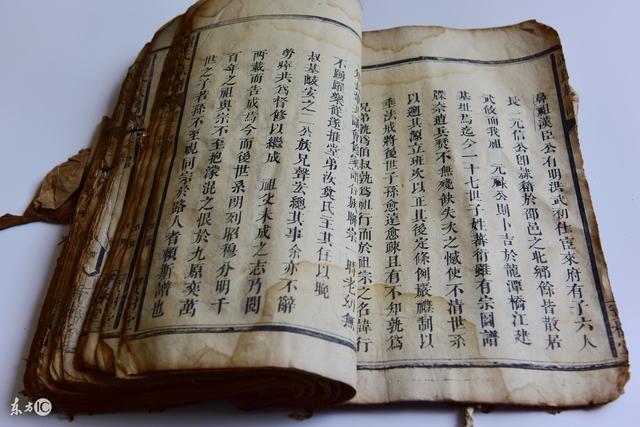 鼻祖漢臣公有明洪武初仕宦來府有子六人
長 元信公卽隸籍於邵邑之北鄉餘皆散居
武攸而我祖 元祿公則卜吉於龍潭橋江建
基址焉迄今一十七世子姓蕃衍雖有宗圖譜
牒奈遭兵燹不無殘缺失次之憾使不清世系
以遡其源立班次以正其後定條例嚴禮制以
垂法戒將後世子孫愈遠愈疎且有不知孰爲
兄弟孰爲伯叔孰爲祖行而於祖宗之名諱行
族聯宗一時老幼無
不踴躍樂從遂推堂弟汝奠氏主其任以晚
叔基峻安之二公族兄聲玄總其事余亦不辭
勞瘁共爲督修以繼成 祖父未成之志乃閱
兩載而告成焉今而後世系明列昭穆分明千
百年之祖與宗不至抱濛混之恨於九原奕萬
世之子若孫不至視同宗於路人者賴斯譜也
东方IC